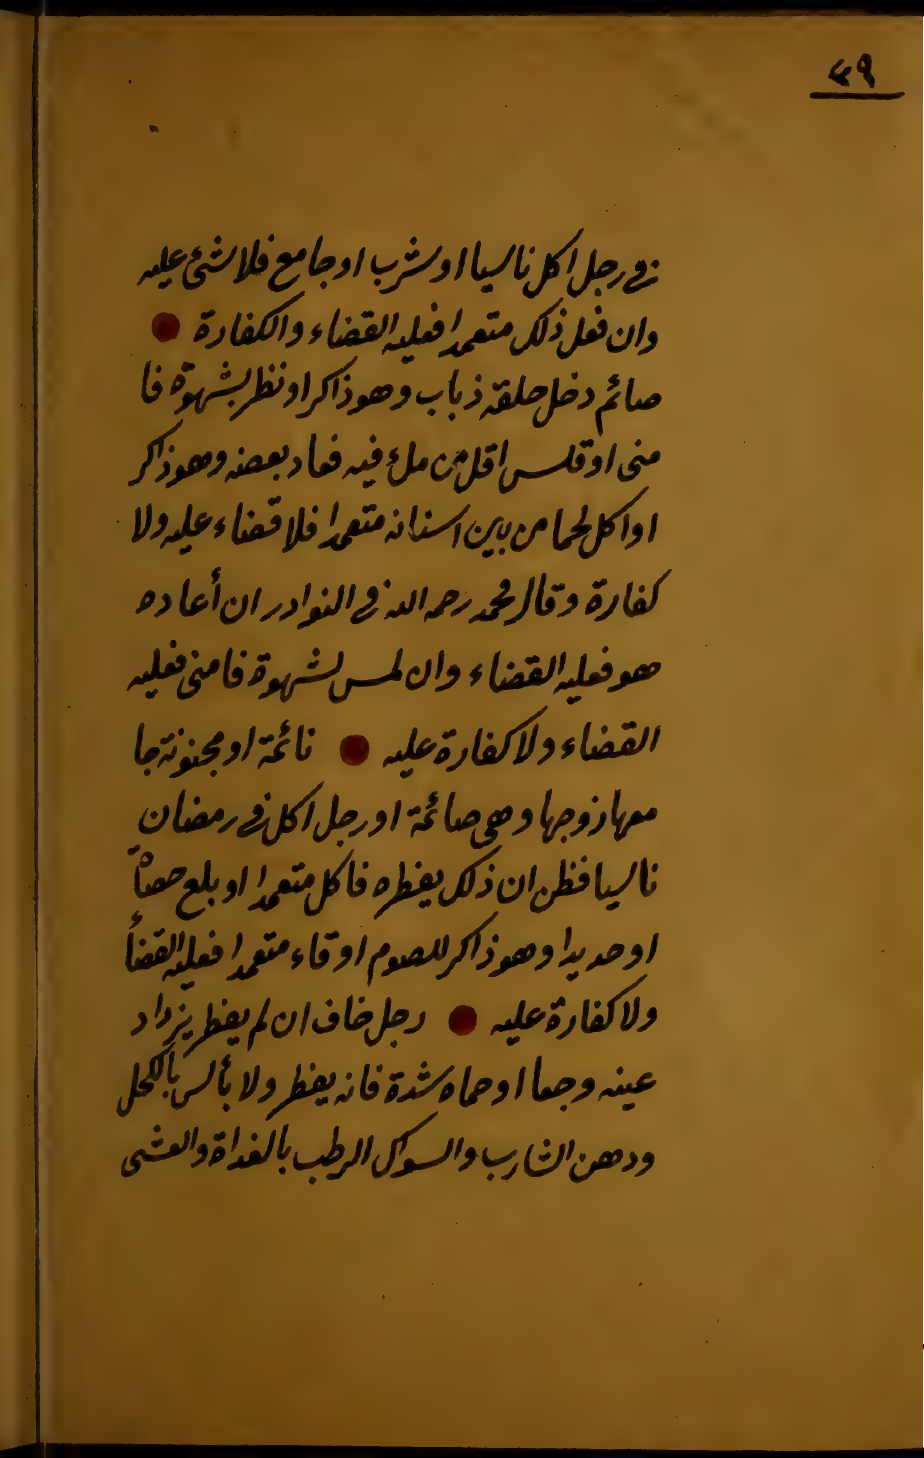 ٤٩
في رجل اكل ناسيا او شرب او جامع فلا شئ عليه
وان فعل ذلك متعمدا فعليه القضاء والكفارة
صائم دخل حلقه ذباب وهو ذاكر او نظر بشهوة فا
منى او قلس اقل من ملء فيه فعاد بعضه وهو ذاكر
او اكل لحما من بين اسنانه متعمدا فلا قضاء عليه ولا
كفارة وقال محمد رحمه الله في النوادر ان أعاده
هو فعليه القضاء وان لمس لشهوة فامنى فعليه
القضاء ولا كفارة عليه نائمة او مجنونة جا
معها زوجها وهي صائمة او رجل اكل في رمضان
ناسيا فظن ان ذلك يفطره فاكل متعمدا او بلع حصاة
او حديدا وهو ذاكر للصوم او قاء متعمدا فعليه القضأ
ولا كفارة عليه رجل خاف ان لم يفطر يزداد
عينه وجعا او حماه شدة فانه يفطر ولا بأس بالكحل
ودهن الشارب والسواك الرطب بالغداة والعشى